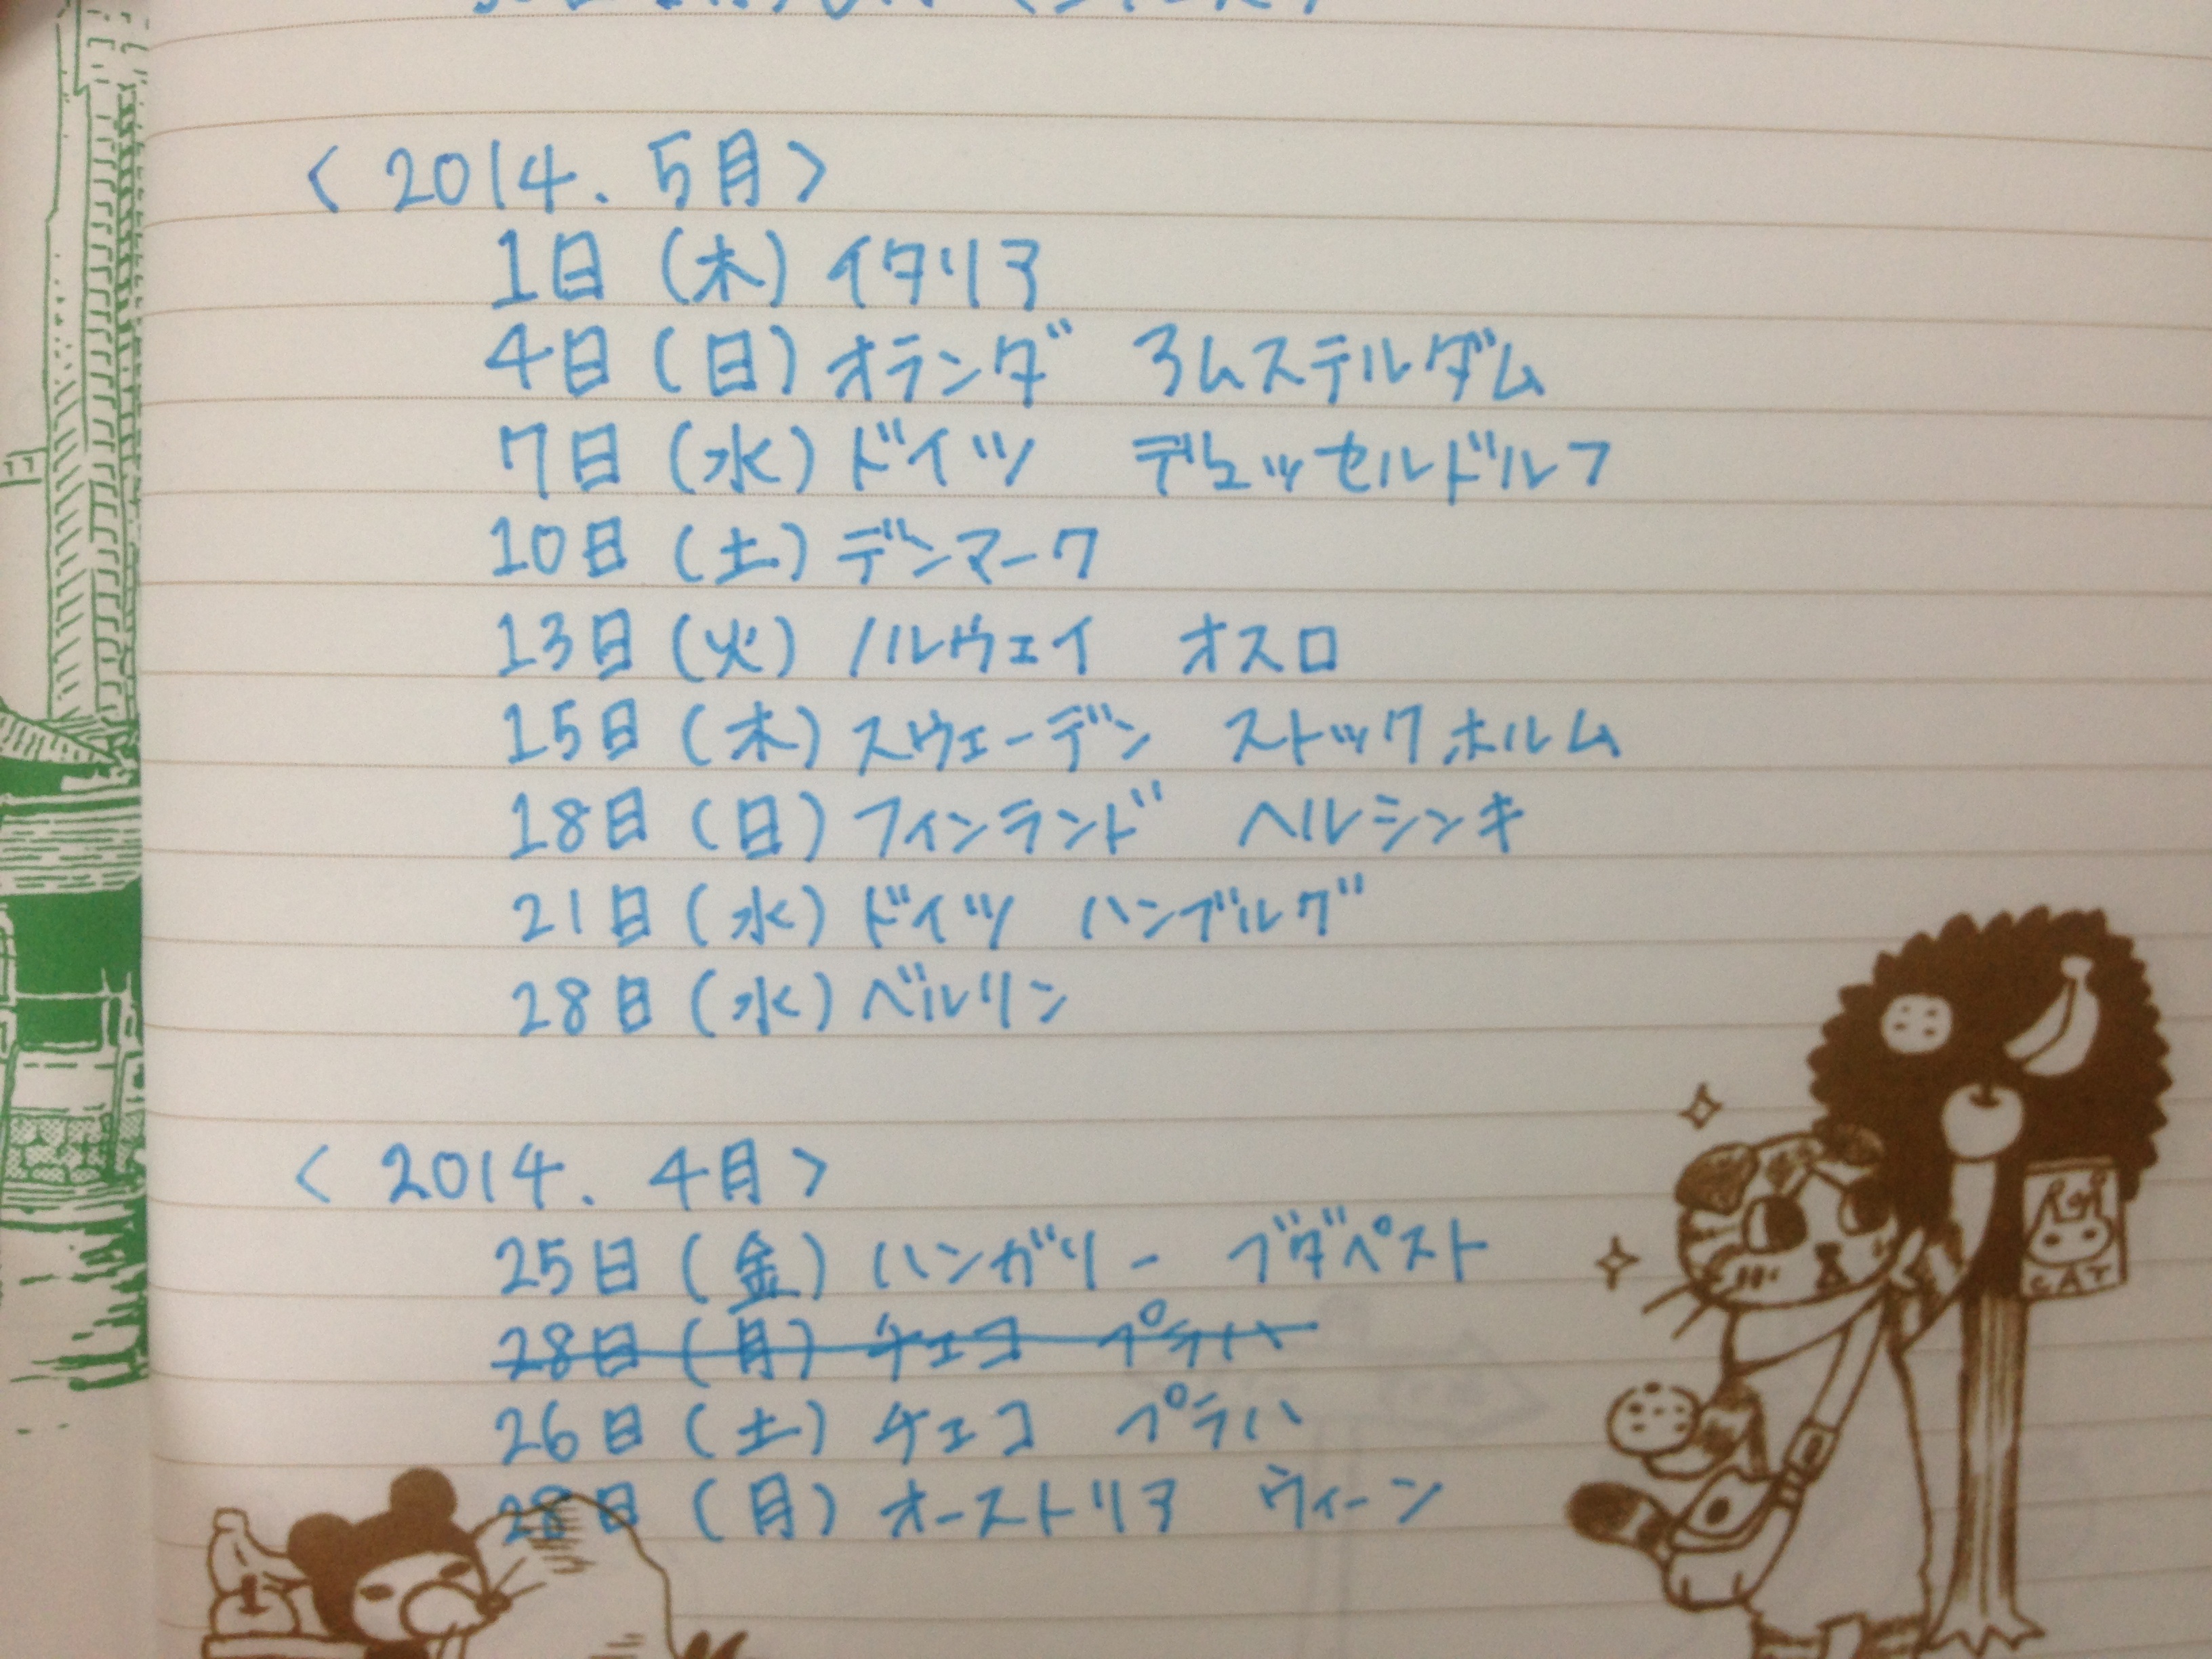 < 2014. 5月 >
1日 (木) イタリア
4日 (日) オランダ アムステルダム
7日 (水) ドイツ デュッセルドルフ
10日 (土) デンマーク
13日 (火) ノルウェイ オスロ
15日 (木) スウェーデン ストックホルム
18日 (日) フィンランド ヘルシンキ
21日 (水) ドイツ ハンブルグ
28日 (水) ベルリン
< 2014. 4月 >
25日 (金) ハンガリー ブダペスト
28日 (月) チェコ プラハ
26日 (土) チェコ プラハ
28日 (月) オーストリア ウィーン
CAT